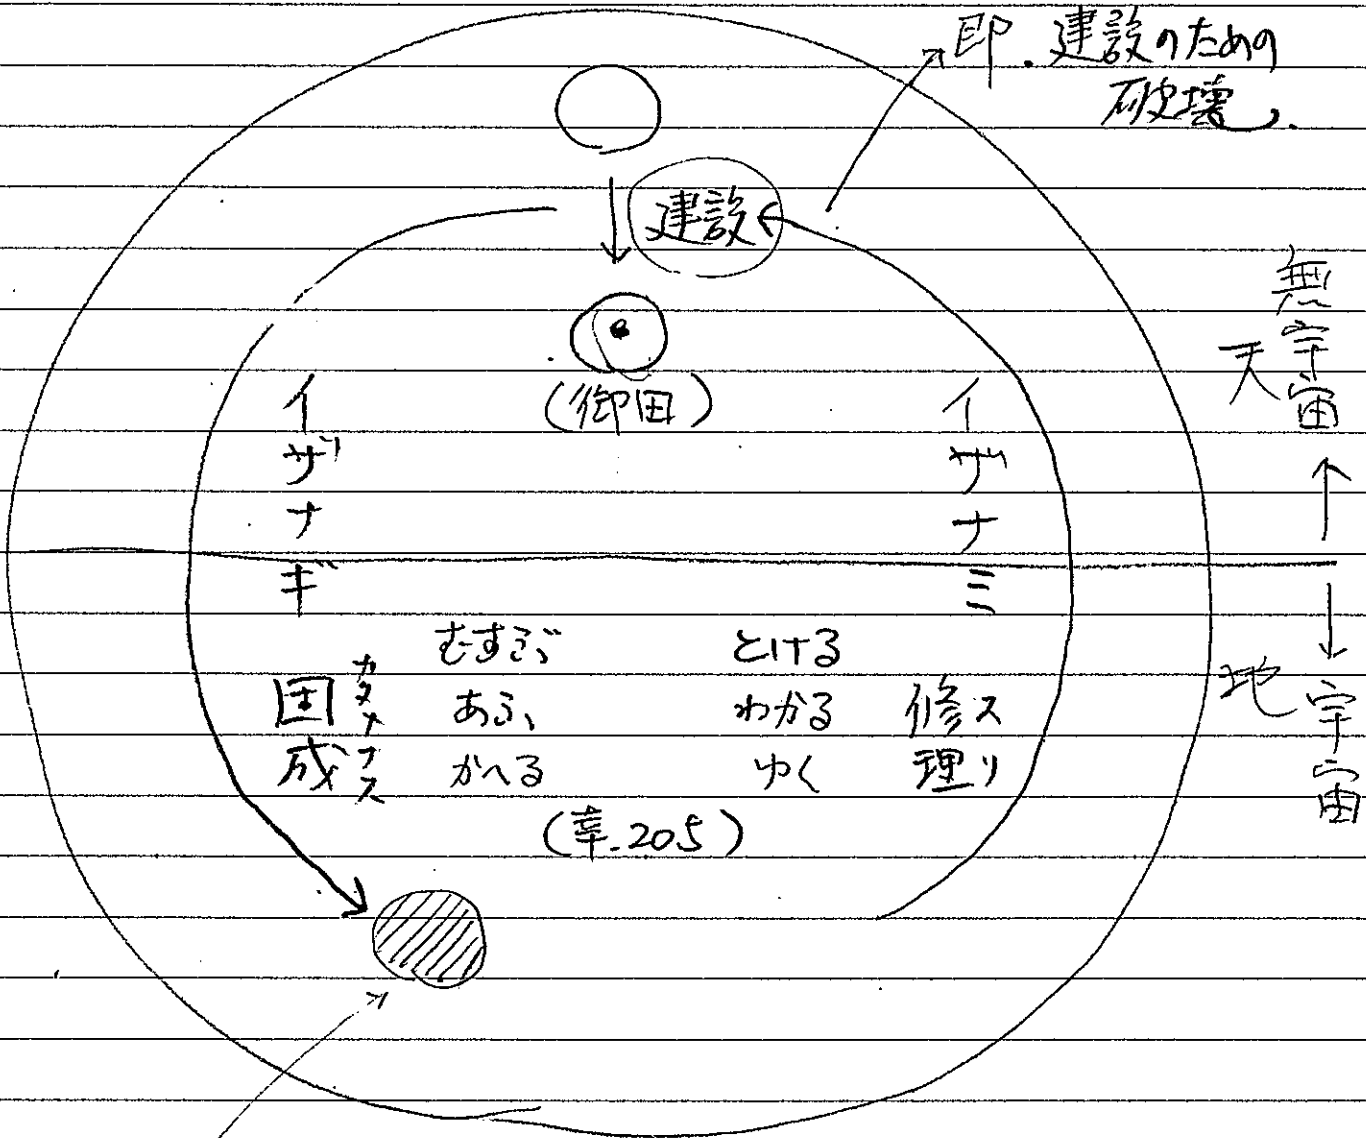 即.建設のための
破壊.
建設
(御田)
イザナギ
イザナミ
無宇宙
天
地
宇宙
むすぶ
あふ
かへる
とける
わかる
ゆく
固成
カタメナス
修理
スリ
(幸.205)